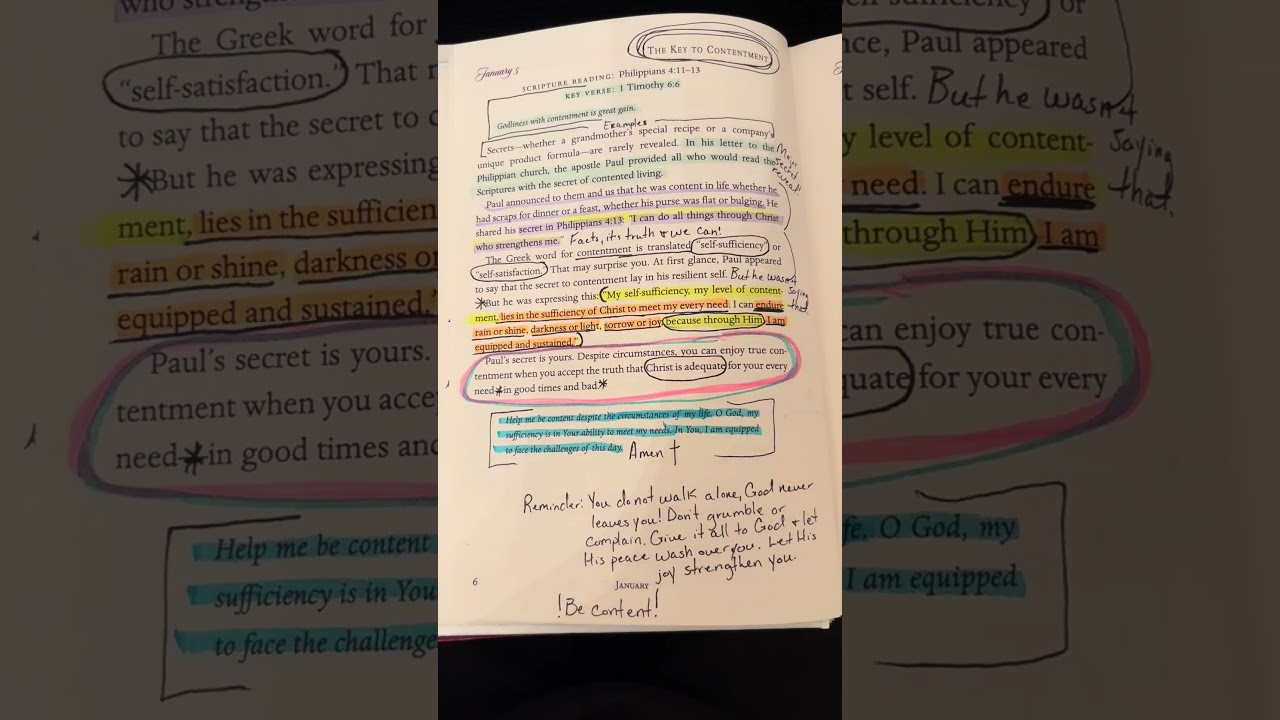 The Key to Contentment
January 5
SCRIPTURE READING: Philippians 4:11–13
KEY VERSE: 1 Timothy 6:6
Godliness with contentment is great gain.
Examples
Secrets—whether a grandmother's special recipe or a company's
unique product formula—are rarely revealed. In his letter to the
Philippian church, the apostle Paul provided all who would read the
Scriptures with the secret of contented living.
Major
secret
reveal!
Paul announced to them and us that he was content in life whether he
had scraps for dinner or a feast, whether his purse was flat or bulging. He
shared his secret in Philippians 4:13: "I can do all things through Christ
who strengthens me." Facts, it's truth & we can!
The Greek word for contentment is translated "self-sufficiency" or
"self-satisfaction." That may surprise you. At first glance, Paul appeared
to say that the secret to contentment lay in his resilient self. But he wasn't
saying
that.
*But he was expressing this: "My self-sufficiency, my level of content-
ment, lies in the sufficiency of Christ to meet my every need. I can endure
rain or shine, darkness or light, sorrow or joy because through Him I am
equipped and sustained."
Paul's secret is yours. Despite circumstances, you can enjoy true con-
tentment when you accept the truth that Christ is adequate for your every
need*in good times and bad.*
Help me be content despite the circumstances of my life. O God, my
sufficiency is in Your ability to meet my needs. In You, I am equipped
to face the challenges of this day. Amen †
Reminder: You do not walk alone, God never
leaves you! Don't grumble or
complain. Give it all to God & let
His peace wash over you. Let His
joy strengthen you.
6
January
!Be content!